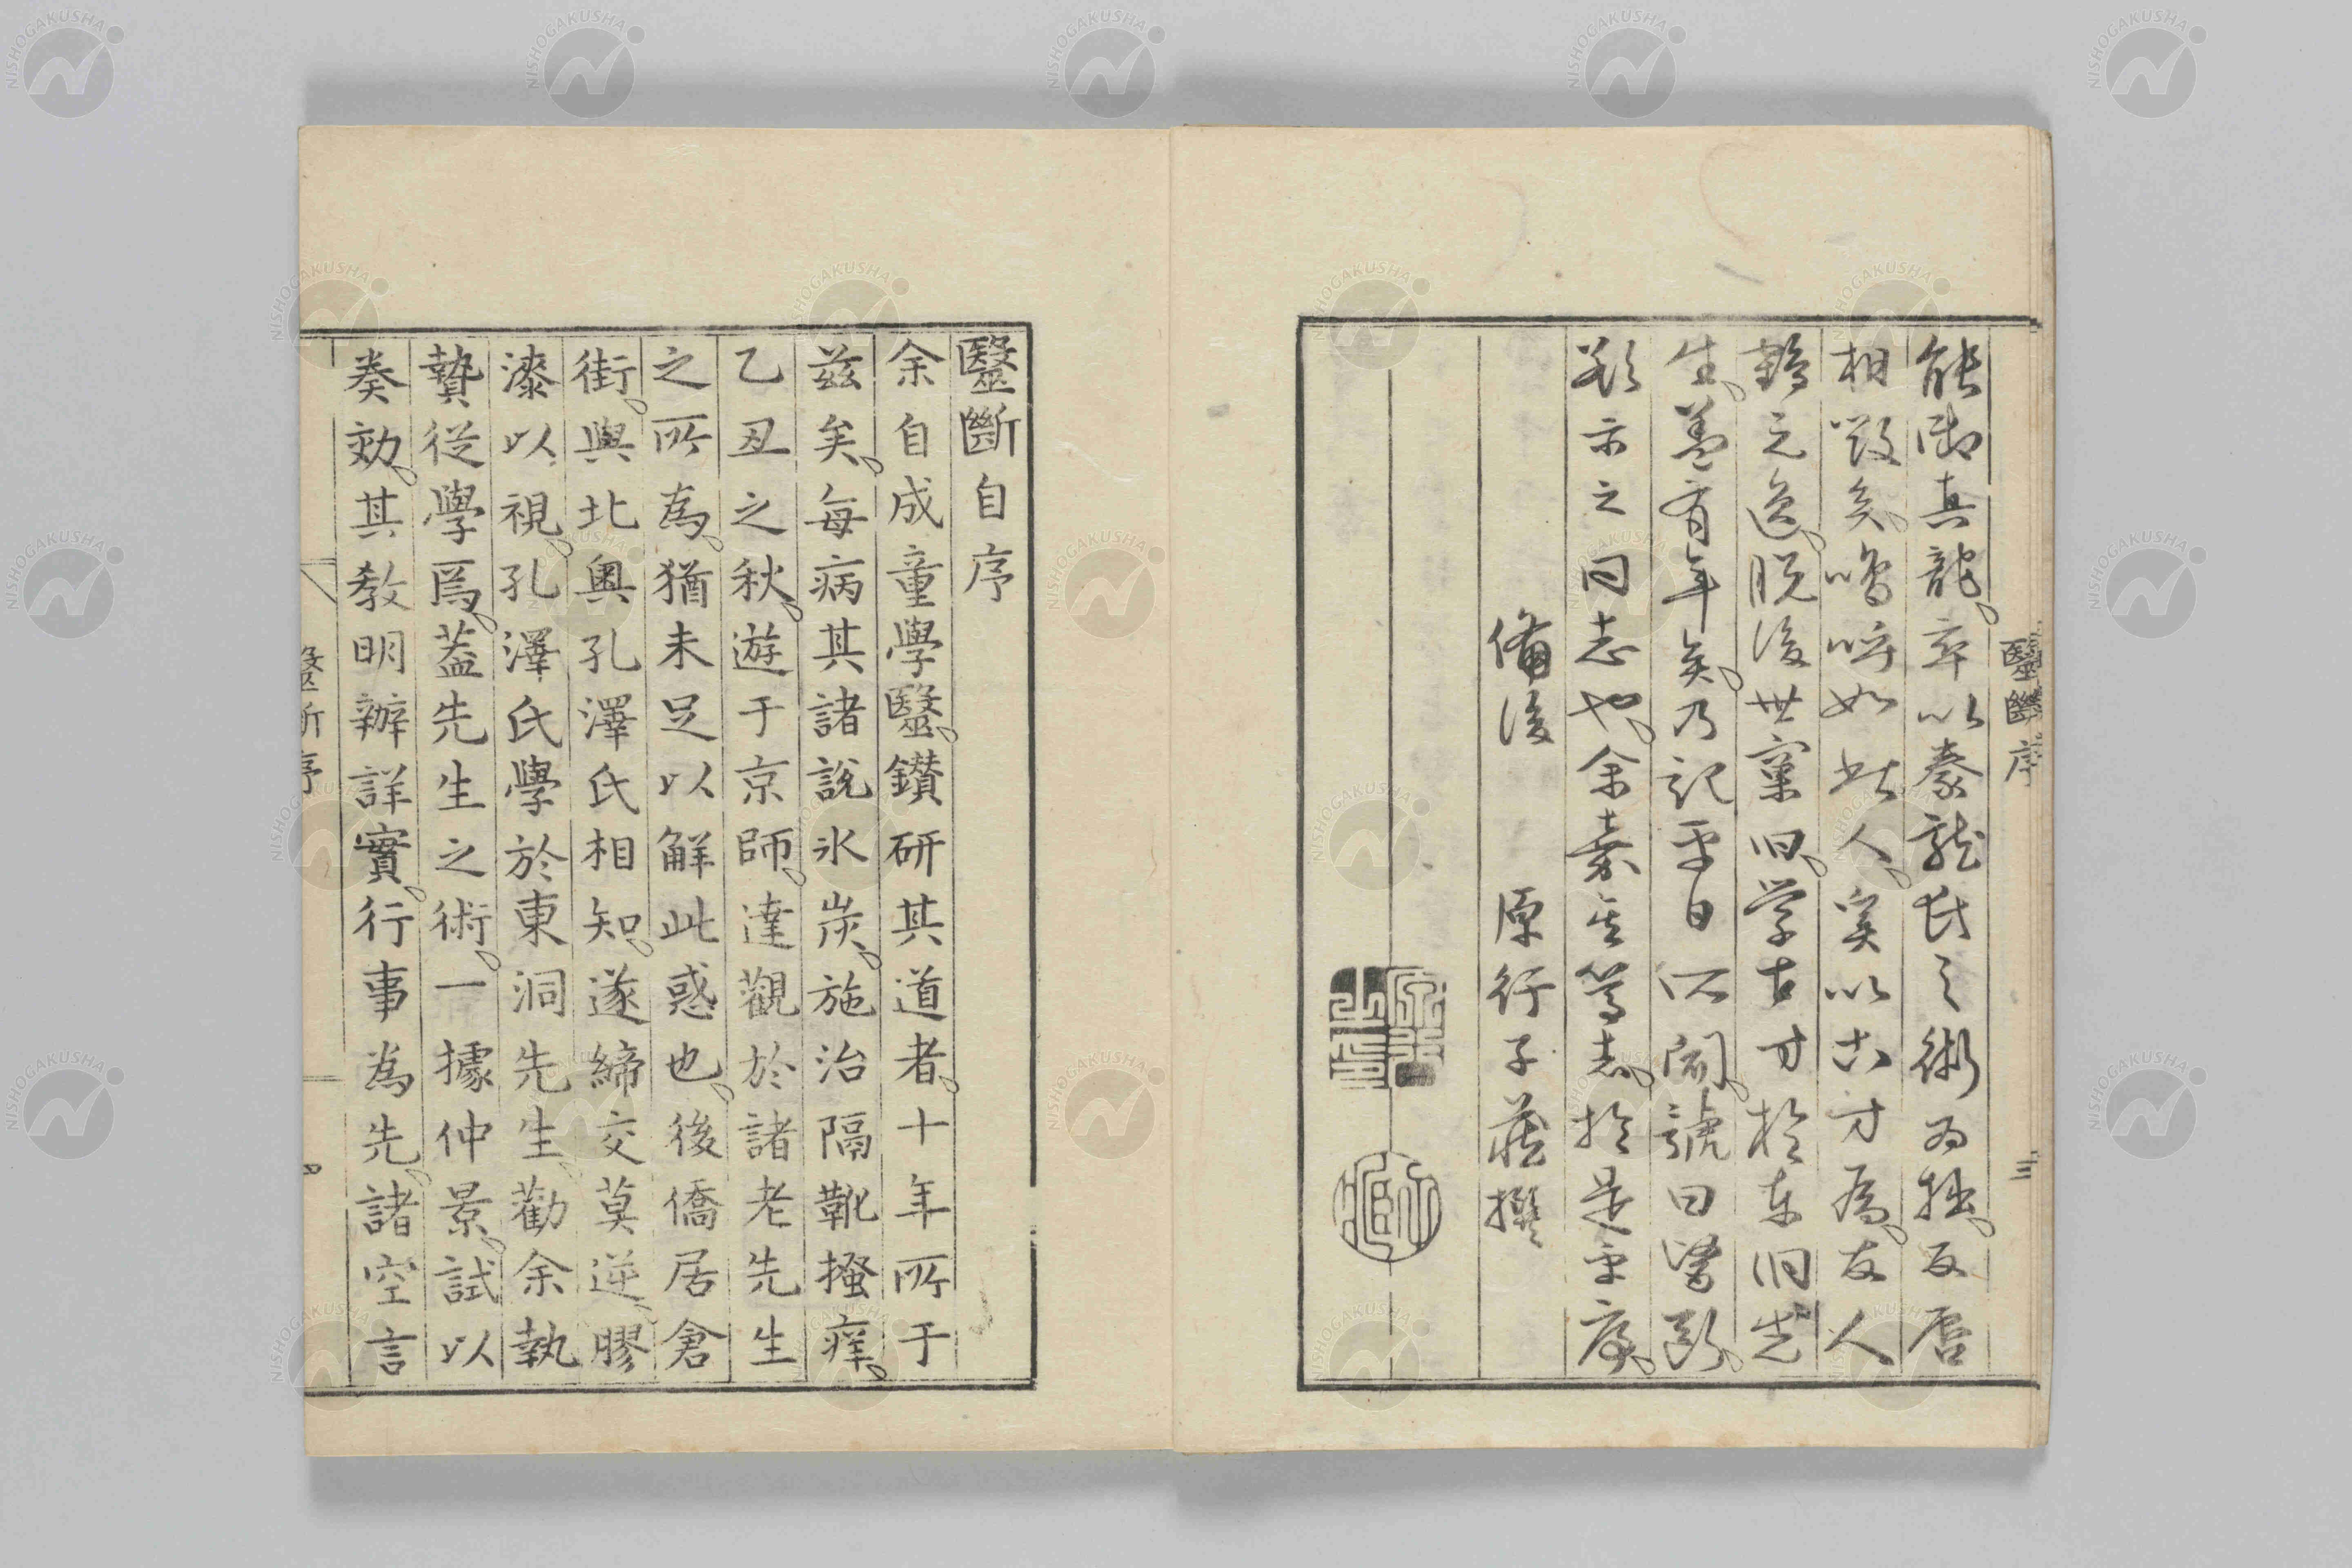 醫斷序 三
能御真龍。卒以豢龍氏之術為拙。反唇
相毀矣。嗚呼如此人。奚以古方為。友人
鶴元逸。脱後世窠臼。学古方於東洞先
生。蓋有年矣。乃記平日所聞。號曰醫斷。
欲示之同志也。余嘉其篤志。於是乎序。
備後 原行子藏撰
醫斷自序
余自成童學醫。鑽硏其道者。十年所于
茲矣。每病其諸說氷炭。施治隔靴搔痒。
乙丑之秋。遊于京師。達觀於諸老先生
之所為。猶未足以觧此惑也。後僑居倉
街。與北奧孔澤氏相知。遂締交莫逆。膠
漆以視。孔澤氏學於東洞先生。勸余執
贄從學焉。蓋先生之術。一據仲景。試以
奏效。其敎明辦詳實。行事為先。諸空言
醫斷序 四
NISHOGAKUSHA